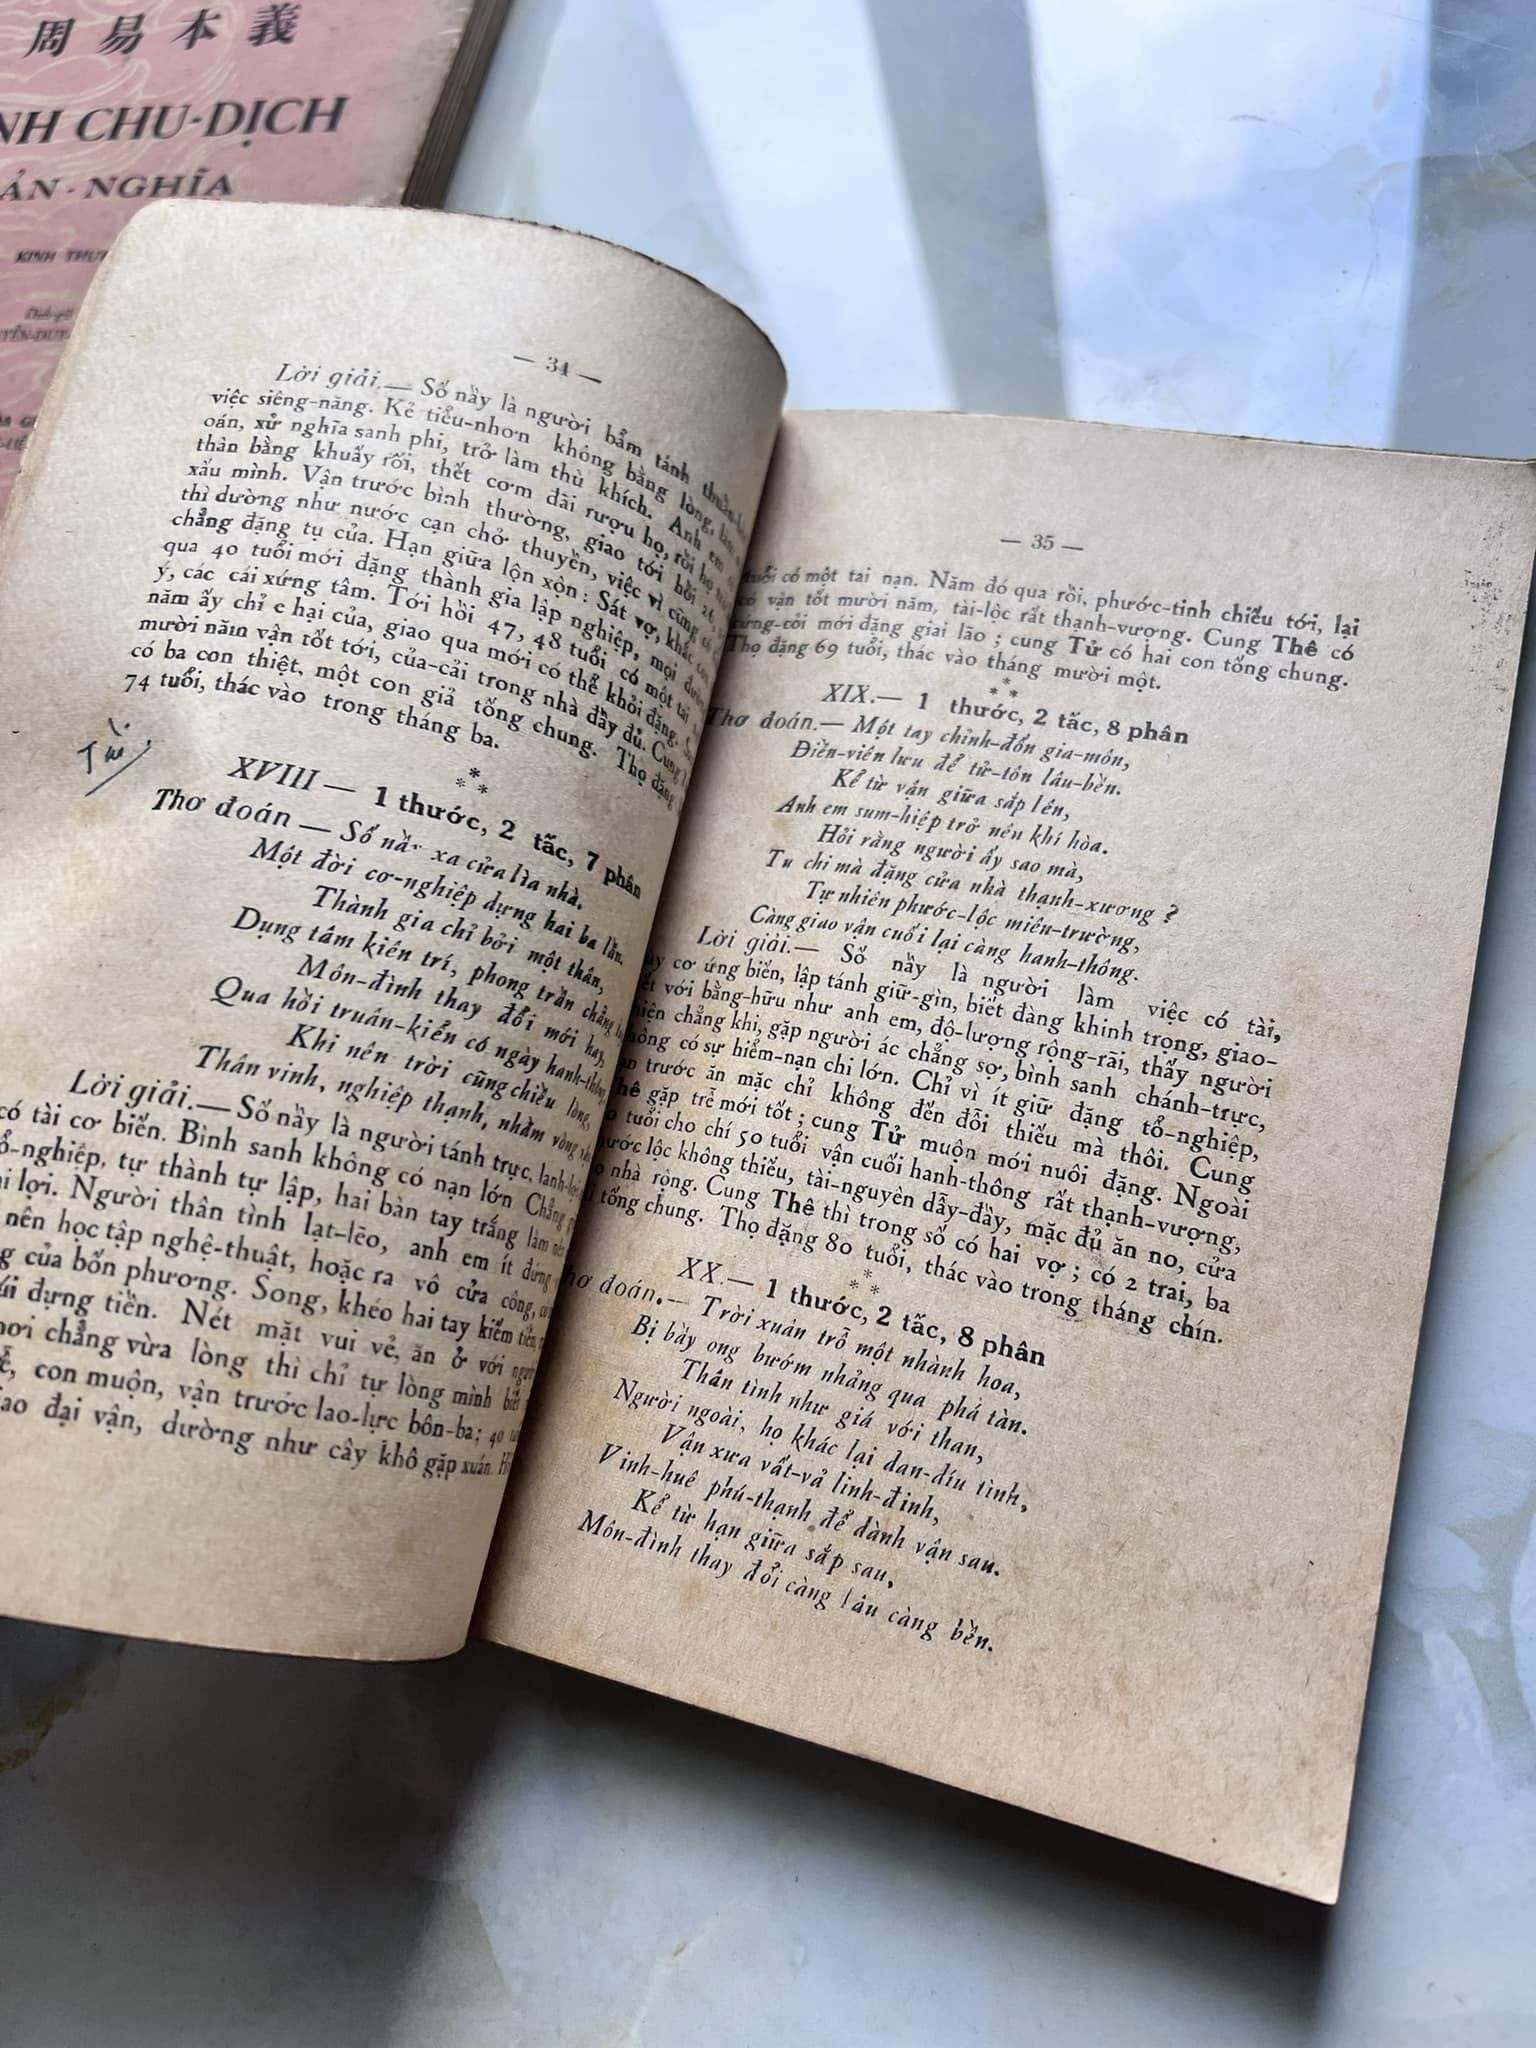 周易本義
NH CHU-DỊCH
ẢN-NGHĨA
KINH
— 34 —
Lời giải.— Số nầy là người bẩm tánh
việc siêng-năng. Kẻ tiểu-nhơn không bằng lòng, làm
oán, xử nghĩa sanh phi, trở làm thù khích. Anh em
thân bằng khuấy rối, thết cơm đãi rượu họ, rồi họ
xấu mình. Vận trước bình thường, giao tới hồi 26,
thì dường như nước cạn chở thuyền, việc vì cũng
chẳng đặng tụ của. Hạn giữa lộn xộn: Sát vợ, khắc
qua 40 tuổi mới đặng thành gia lập nghiệp, mọi
ý, các cái xứng tâm. Tới hồi 47, 48 tuổi có một tai
năm ấy chỉ e hại của, giao qua mới có thể khỏi đặng.
mười năm vận tốt tới, của-cải trong nhà đầy đủ. Cung
có ba con thiệt, một con giả tống chung. Thọ đặng
74 tuổi, thác vào trong tháng ba.
* * *
XVIII — 1 thước, 2 tấc, 7 phân
Thơ đoán — Số nầ xa cửa lìa nhà.
Một đời cơ-nghiệp dựng hai ba lần.
Thành gia chỉ bởi một thân,
Dụng tâm kiên trí, phong trần chẳng
Môn-đình thay đổi mới hay,
Qua hồi truân-kiển có ngày hanh-thông
Khi nên trời cũng chiều lòng,
Thân vinh, nghiệp thạnh, nhằm vòng
Lời giải.— Số nầy là người tánh trực, lanh-lợi
có tài cơ biến. Bình sanh không có nạn lớn Chẳng
ổ-nghiệp, tự thành tự lập, hai bàn tay trắng làm nên
i lợi. Người thân tình lạt-lẽo, anh em ít đứng
nên học tập nghệ-thuật, hoặc ra vô cửa công,
g của bổn phương. Song, khéo hai tay kiếm tiền,
đựng tiền. Nét mặt vui vẻ, ăn ở với người
ơi chẳng vừa lòng thì chỉ tự lòng mình biết
ễ, con muộn, vận trước lao-lực bôn-ba; 40
iao đại vận, dường như cây khô gặp xuân.
— 35 —
tuổi có một tai nạn. Năm đó qua rồi, phước-tinh chiếu tới, lại
có vận tốt mười năm, tài-lộc rất thạnh-vượng. Cung Thê có
cứng-cỏi mới đặng giai lão; cung Tử có hai con tống chung.
Thọ đặng 69 tuổi, thác vào tháng mười một.
* * *
XIX.— 1 thước, 2 tấc, 8 phân
Thơ đoán.— Một tay chỉnh-đốn gia-môn,
Điền-viên lưu để tử-tôn lâu-bền.
Kể từ vận giữa sắp lên,
Anh em sum-hiệp trở nên khí hòa.
Hỏi rằng người ấy sao mà,
Tu chi mà đặng cửa nhà thạnh-xương?
Tự nhiên phước-lộc miên-trường,
Càng giao vận cuối lại càng hanh-thông.
Lời giải.— Số nầy là người làm việc có tài,
cơ ứng biến, lập tánh giữ-gìn, biết đàng khinh trọng, giao-
với bằng-hữu như anh em, độ-lượng rộng-rãi, thấy người
hiện chẳng khi, gặp người ác chẳng sợ, bình sanh chánh-trực,
không có sự hiểm-nạn chi lớn. Chỉ vì ít giữ đặng tổ-nghiệp,
trước ăn mặc chỉ không đến đỗi thiếu mà thôi. Cung
Thê gặp trễ mới tốt; cung Tử muộn mới nuôi đặng. Ngoài
tuổi cho chí 50 tuổi vận cuối hanh-thông rất thạnh-vượng,
phước lộc không thiếu, tài-nguyền dẫy-đầy, mặc đủ ăn no, cửa
nhà rộng. Cung Thê thì trong số có hai vợ; có 2 trai, ba
tống chung. Thọ đặng 80 tuổi, thác vào trong tháng chín.
* * *
XX.— 1 thước, 2 tấc, 8 phân
Thơ đoán.— Trời xuân trổ một nhành hoa,
Bị bầy ong bướm nhảng qua phá tàn.
Thân tình như giá với than,
Người ngoài, họ khác lại dan-díu tình,
Vận xưa vất-vả linh-đinh,
Vinh-huê phú-thạnh để dành vận sau.
Kể từ hạn giữa sắp sau,
Môn-đình thay đổi càng lâu càng bền.